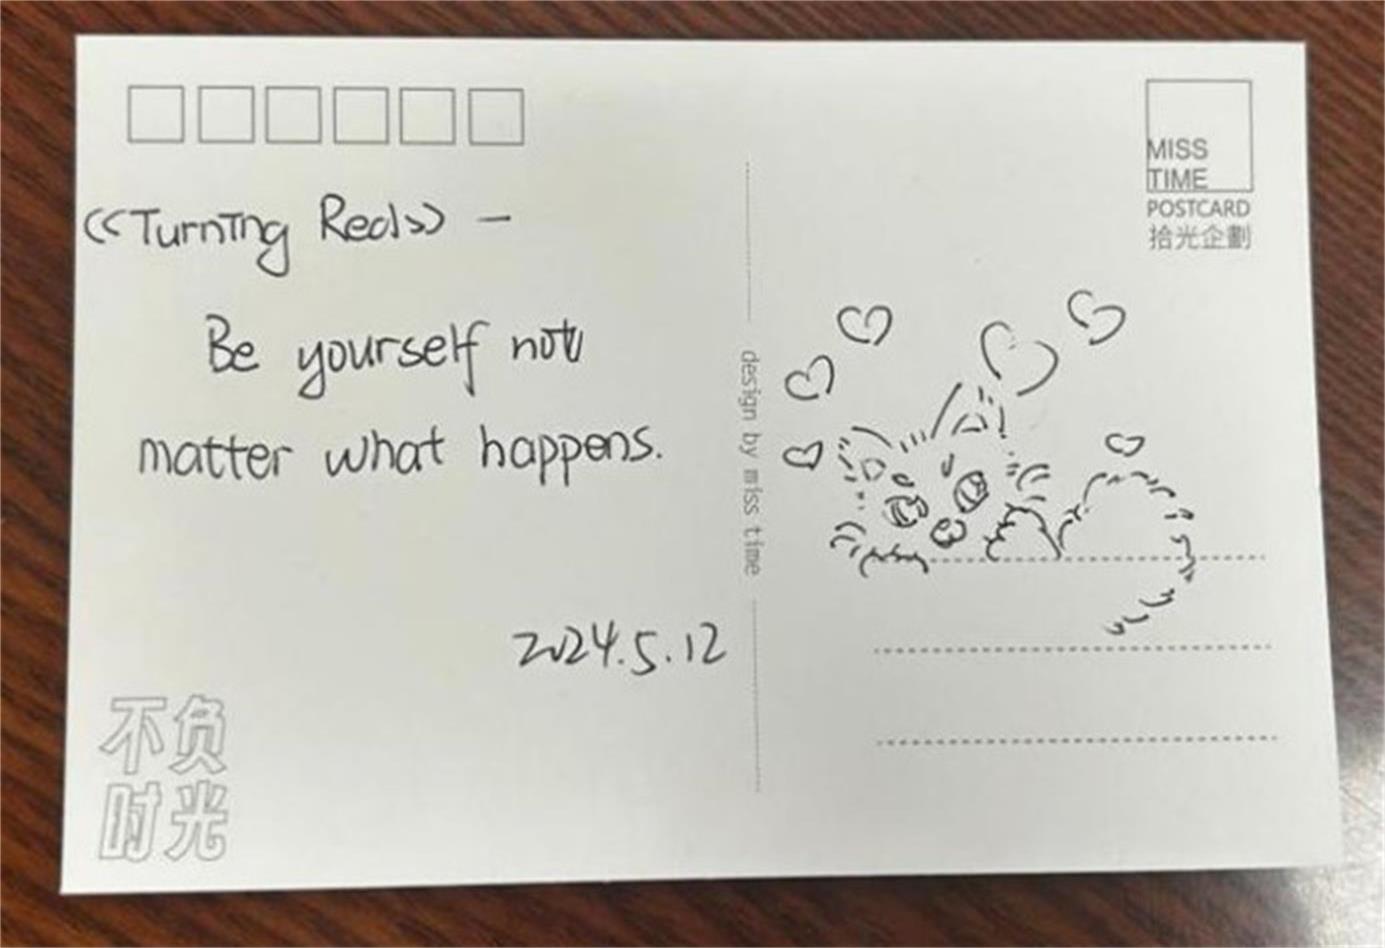 《Turning Red》 —
Be yourself not
matter what happens.
2024.5.12
不负
时光
design by miss time
MISS
TIME
POSTCARD
拾光企劃